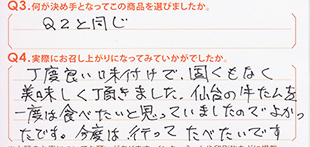 Q3.何が決め手となってこの商品を選びましたか。
Q2と同じ
Q4.実際にお召し上がりになってみていかがでしたか。
丁度良い味付けで、固くもなく
美味しく頂きました。仙台の牛たんを
一度は食べたいと思っていましたのでよかっ
たです。今度は行ってたべたいです